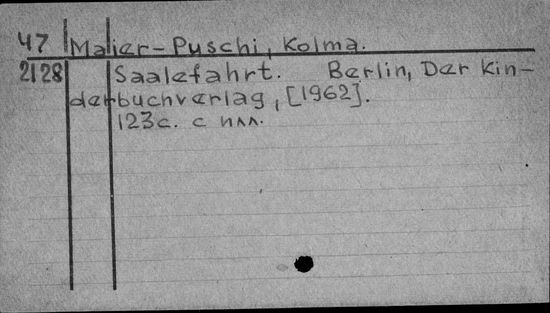 47 Maier-Puschi, Kolma.
2128 Saalefahrt. Berlin, Der Kin-
derbuchverlag, [1962].
123с. с илл.